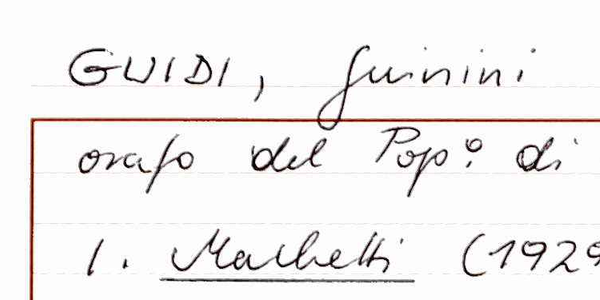 GUIDI, Guinini
orafo del Pop.º di
1. Machetti (1929